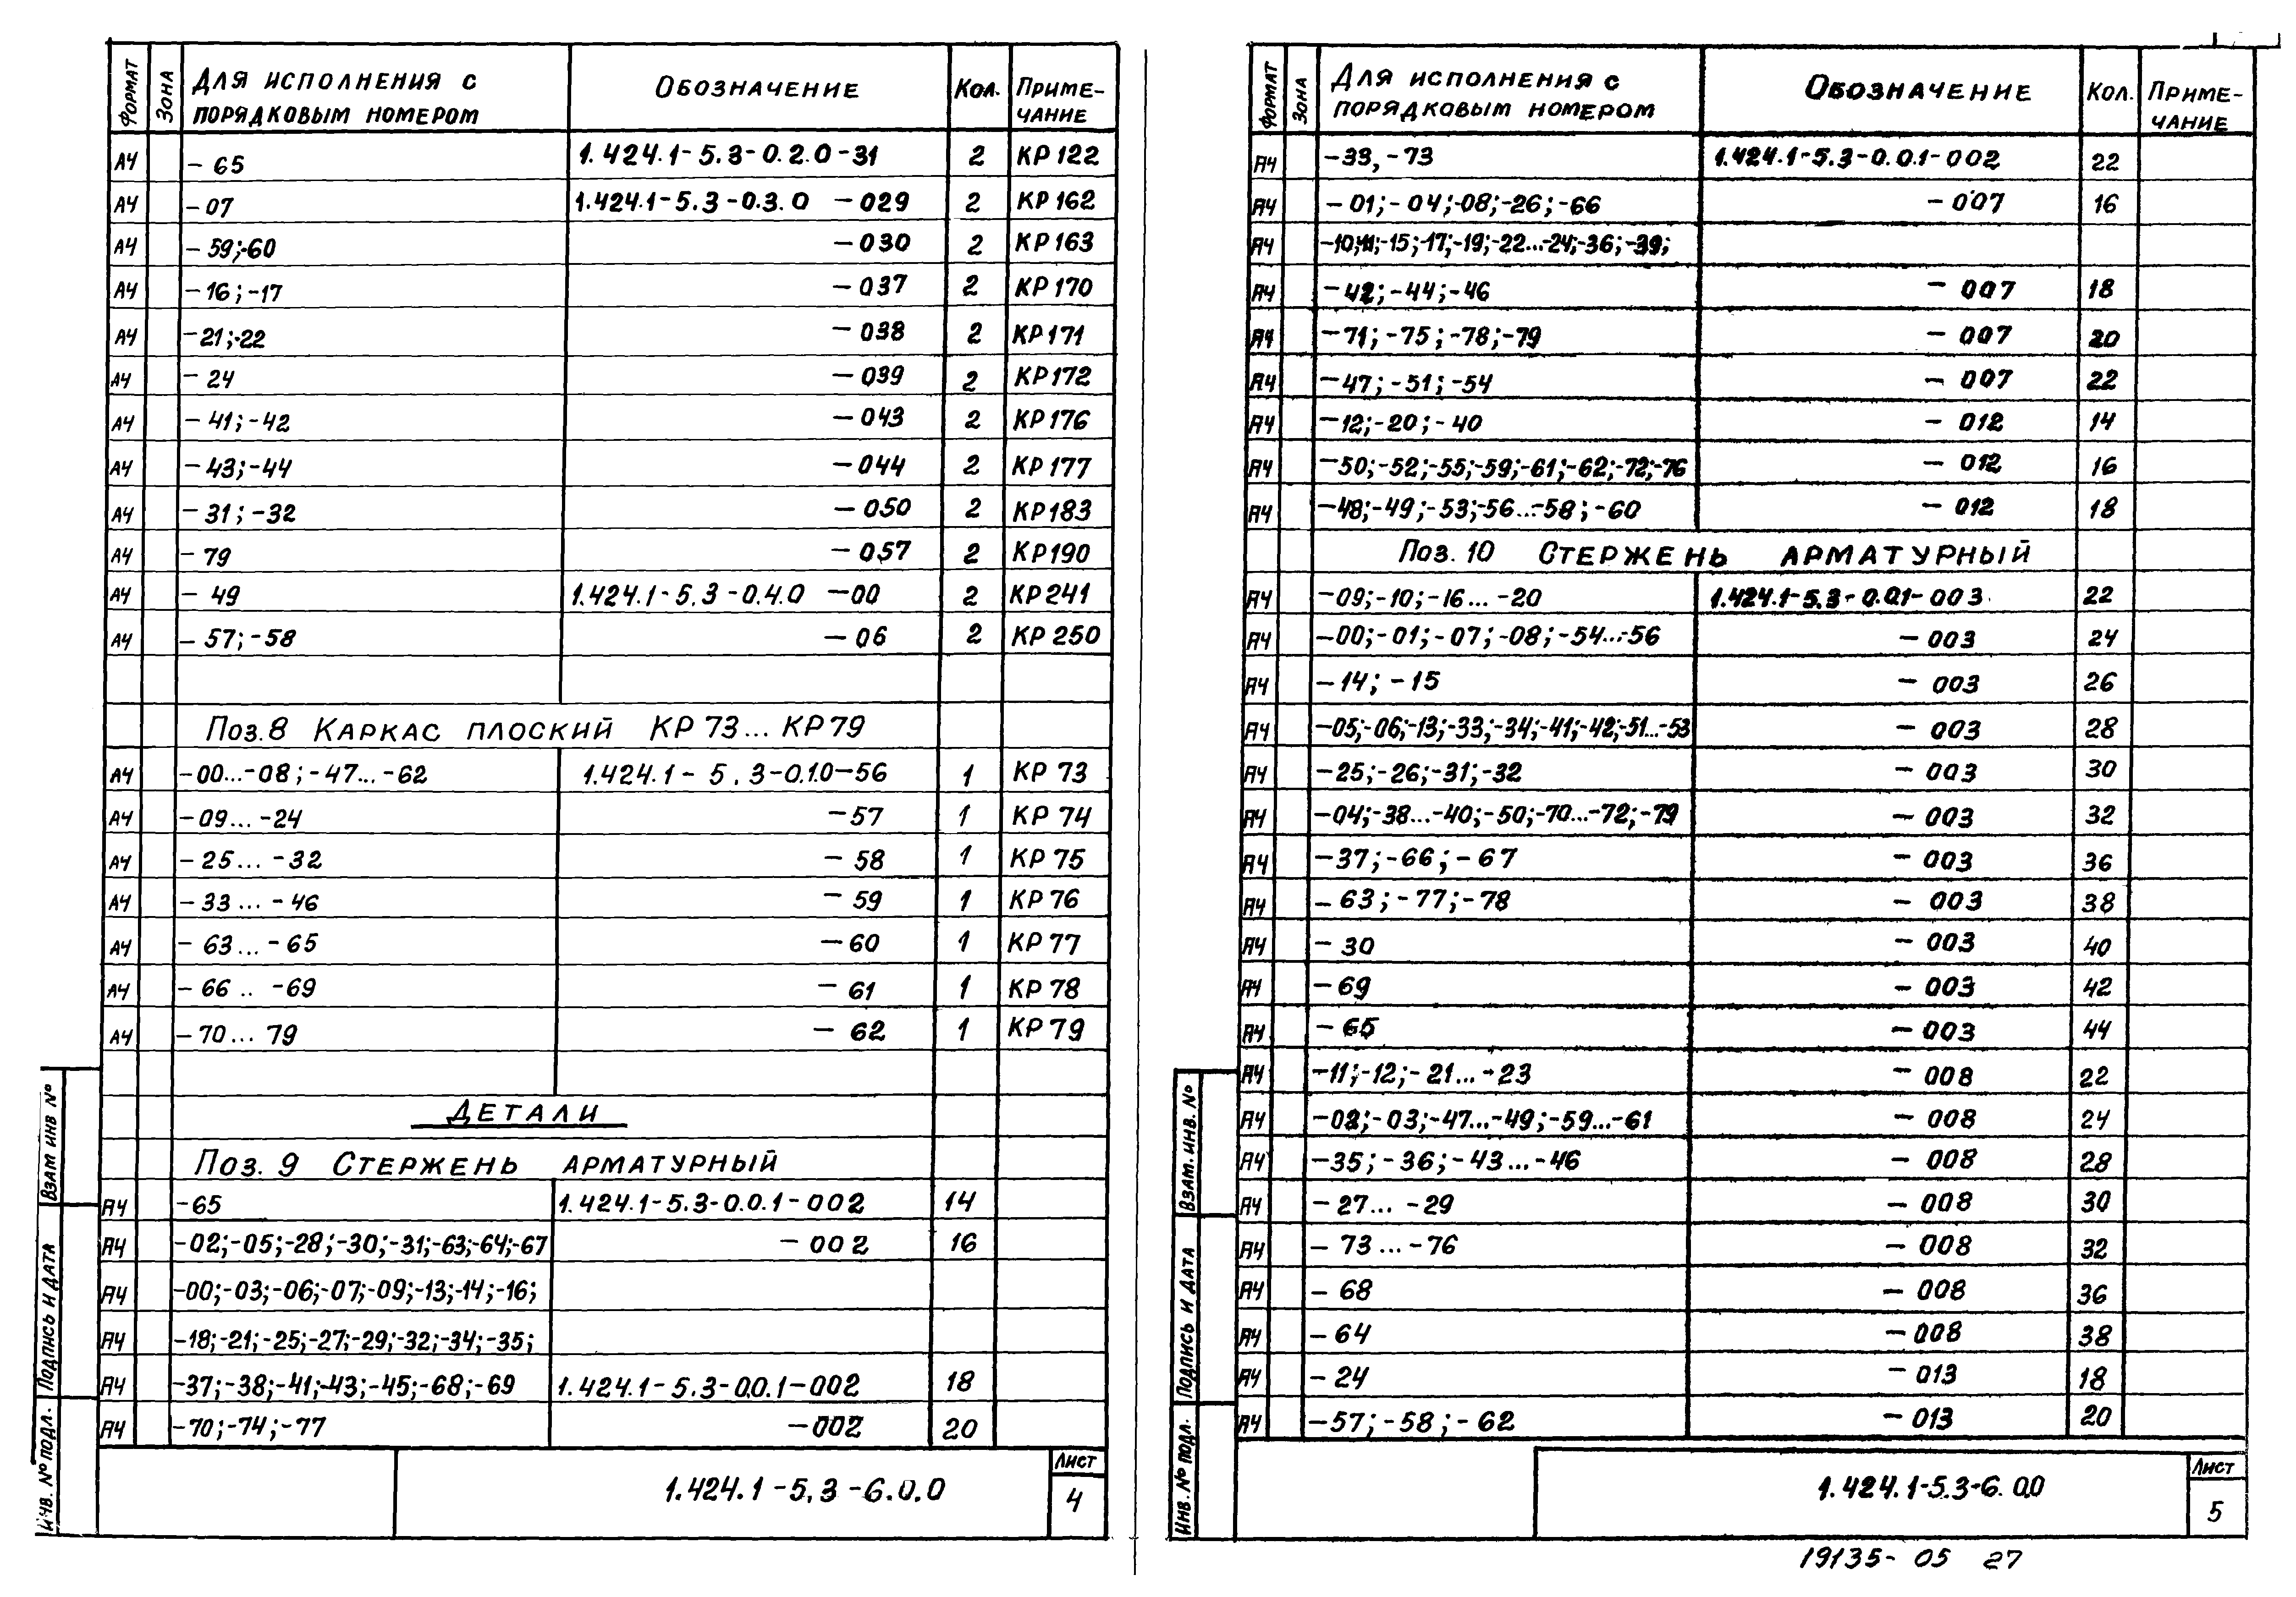 ФОРМАТ ЗОНА ДЛЯ ИСПОЛНЕНИЯ С ПОРЯДКОВЫМ НОМЕРОМ ОБОЗНАЧЕНИЕ КОЛ. ПРИМЕ-ЧАНИЕ
А4 - 65 1.424.1-5.3-0.2.0-31 2 КР122
А4 -07 1.424.1-5.3-0.3.0 -029 2 КР162
А4 - 59;-60 -030 2 КР163
А4 -16;-17 -037 2 КР170
А4 -21;-22 -038 2 КР171
А4 - 24 -039 2 КР172
А4 - 41;-42 -043 2 КР176
А4 -43;-44 -044 2 КР177
А4 -31;-32 -050 2 КР183
А4 - 79 -057 2 КР190
А4 - 49 1.424.1-5.3-0.4.0 -00 2 КР241
А4 - 57;-58 -06 2 КР250
Поз.8 КАРКАС ПЛОСКИЙ КР73...КР79
А4 -00...-08;-47...-62 1.424.1-5.3-0.1.0-56 1 КР 73
А4 -09...-24 -57 1 КР 74
А4 -25...-32 -58 1 КР 75
А4 -33...-46 -59 1 КР 76
А4 - 63...-65 -60 1 КР 77
А4 - 66..-69 -61 1 КР 78
А4 -70...79 -62 1 КР 79
ДЕТАЛИ
Поз. 9 СТЕРЖЕНЬ АРМАТУРНЫЙ
А4 -65 1.424.1-5.3-0.0.1-002 14
А4 -02;-05;-28;-30;-31;-63;-64;-67 -002 16
А4 -00;-03;-06;-07;-09;-13;-14;-16;
А4 -18;-21;-25;-27;-29;-32;-34;-35;
А4 -37;-38;-41;-43;-45;-68;-69 1.424.1-5.3-0.0.1-002 18
А4 -70;-74;-77 -002 20
1.424.1-5.3-6.0.0
ЛИСТ
4
ВЗАМ ИНВ №
ПОДПИСЬ И ДАТА
ИНВ. № ПОДЛ.
ФОРМАТ ЗОНА ДЛЯ ИСПОЛНЕНИЯ С ПОРЯДКОВЫМ НОМЕРОМ ОБОЗНАЧЕНИЕ КОЛ. ПРИМЕ-ЧАНИЕ
А4 -33,-73 1.424.1-5.3-0.0.1-002 22
А4 -01;-04;-08;-26;-66 -007 16
А4 -10;11;-15;-17;-19;-22...-24;-36;-39;
А4 -42;-44;-46 -007 18
А4 -71;-75;-78;-79 -007 20
А4 -47;-51;-54 -007 22
А4 -12;-20;-40 -012 14
А4 -50;-52;-55;-59;-61;-62;-72;-76 -012 16
А4 -48;-49;-53;-56...-58;-60 -012 18
Поз. 10 СТЕРЖЕНЬ АРМАТУРНЫЙ
А4 -09;-10;-16...-20 1.424.1-5.3-0.0.1-003 22
А4 -00;-01;-07;-08;-54...-56 -003 24
А4 -14;-15 -003 26
А4 -05;-06;-13;-33;-34;-41;-42;-51...-53 -003 28
А4 -25;-26;-31;-32 -003 30
А4 -04;-38...-40;-50;-70...-72;-79 -003 32
А4 -37;-66;-67 -003 36
А4 -63;-77;-78 -003 38
А4 -30 -003 40
А4 -69 -003 42
А4 -65 -003 44
А4 -11;-12;-21...-23 -008 22
А4 -02;-03;-47...-49;-59...-61 -008 24
А4 -35;-36;-43...-46 -008 28
А4 -27...-29 -008 30
А4 -73...-76 -008 32
А4 -68 -008 36
А4 -64 -008 38
А4 -24 -013 18
А4 -57;-58;-62 -013 20
1.424.1-5.3-6.0.0
ЛИСТ
5
ВЗАМ. ИНВ. №
ПОДПИСЬ И ДАТА
ИНВ. № ПОДЛ.
19135-05 27